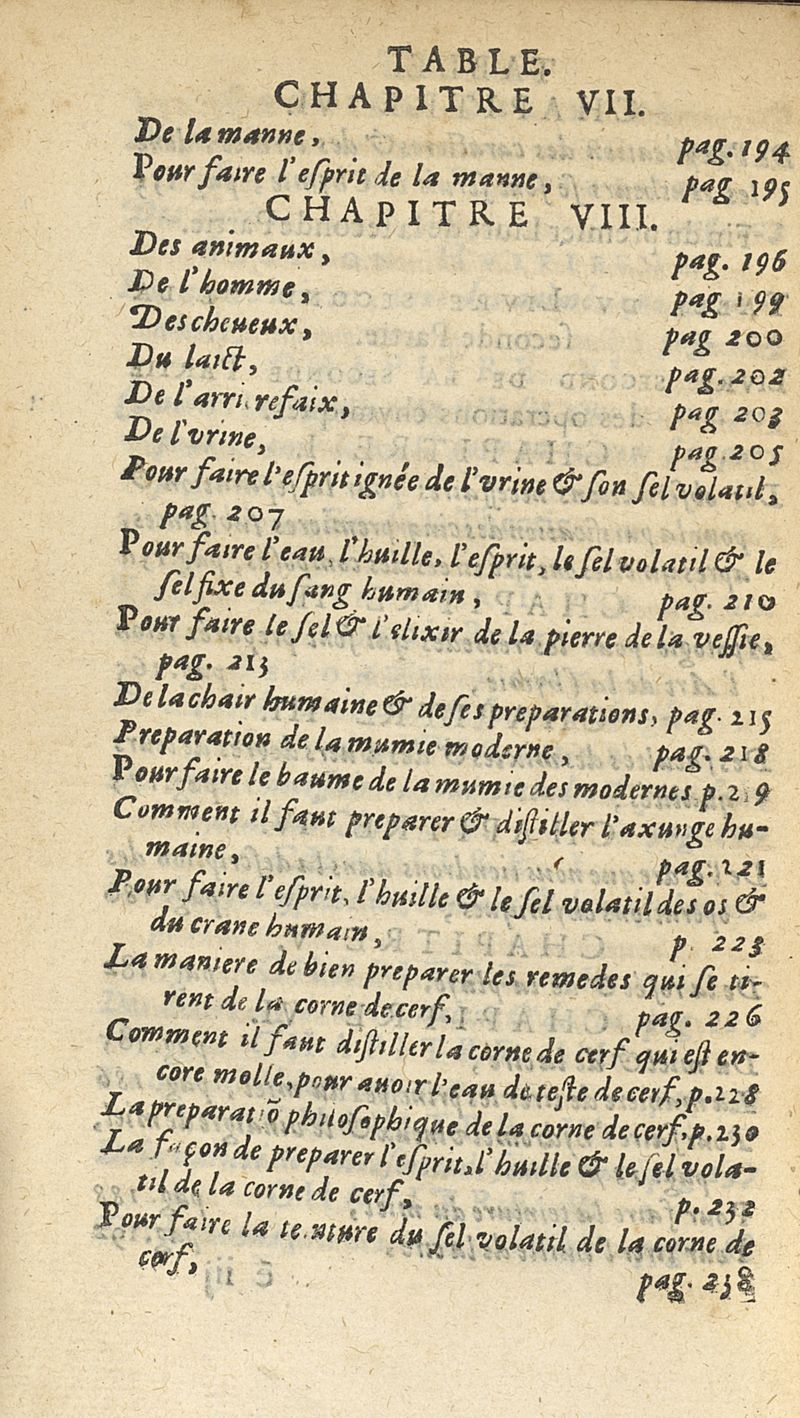 TABLE.
CHAPITRE VII.
De la manne, pag. 194
Pour faire l'eſprit de la manne, pag 195
CHAPITRE VIII.
Des animaux, pag. 196
De l'homme, pag 199
Des cheueux, pag 200
Du laict, pag. 202
De l'arrierefaix, pag 203
De l'vrine, pag. 205
Pour faire l'eſprit ignée de l'vrine & ſon ſel volatil,
pag. 207
Pour faire l'eau, l'huille, l'eſprit, le ſel volatil & le
ſel fixe du ſang humain, pag. 210
Pour faire le ſel & l'elixir de la pierre de la veſſie,
pag. 213
De la chair humaine & de ſes preparations, pag. 215
Preparation de la mumie moderne, pag. 218
Pour faire le baume de la mumie des modernes p. 219
Comment il faut preparer & diſtiller l'axunge hu-
maine, pag. 221
Pour faire l'eſprit, l'huille & le ſel volatil des os &
du crane humain, p. 223
La maniere de bien preparer les remedes qui ſe ti-
rent de la corne de cerf, pag. 226
Comment il faut diſtiller la corne de cerf qui eſt en-
core molle, pour auoir l'eau de teſte de cerf, p. 228
La preparatiõ philoſophique de la corne de cerf, p. 230
La façon de preparer l'eſprit, l'huille & le ſel vola-
til de la corne de cerf, p. 232
Pour faire la teinture du ſel volatil de la corne de
cerf, pag. 238